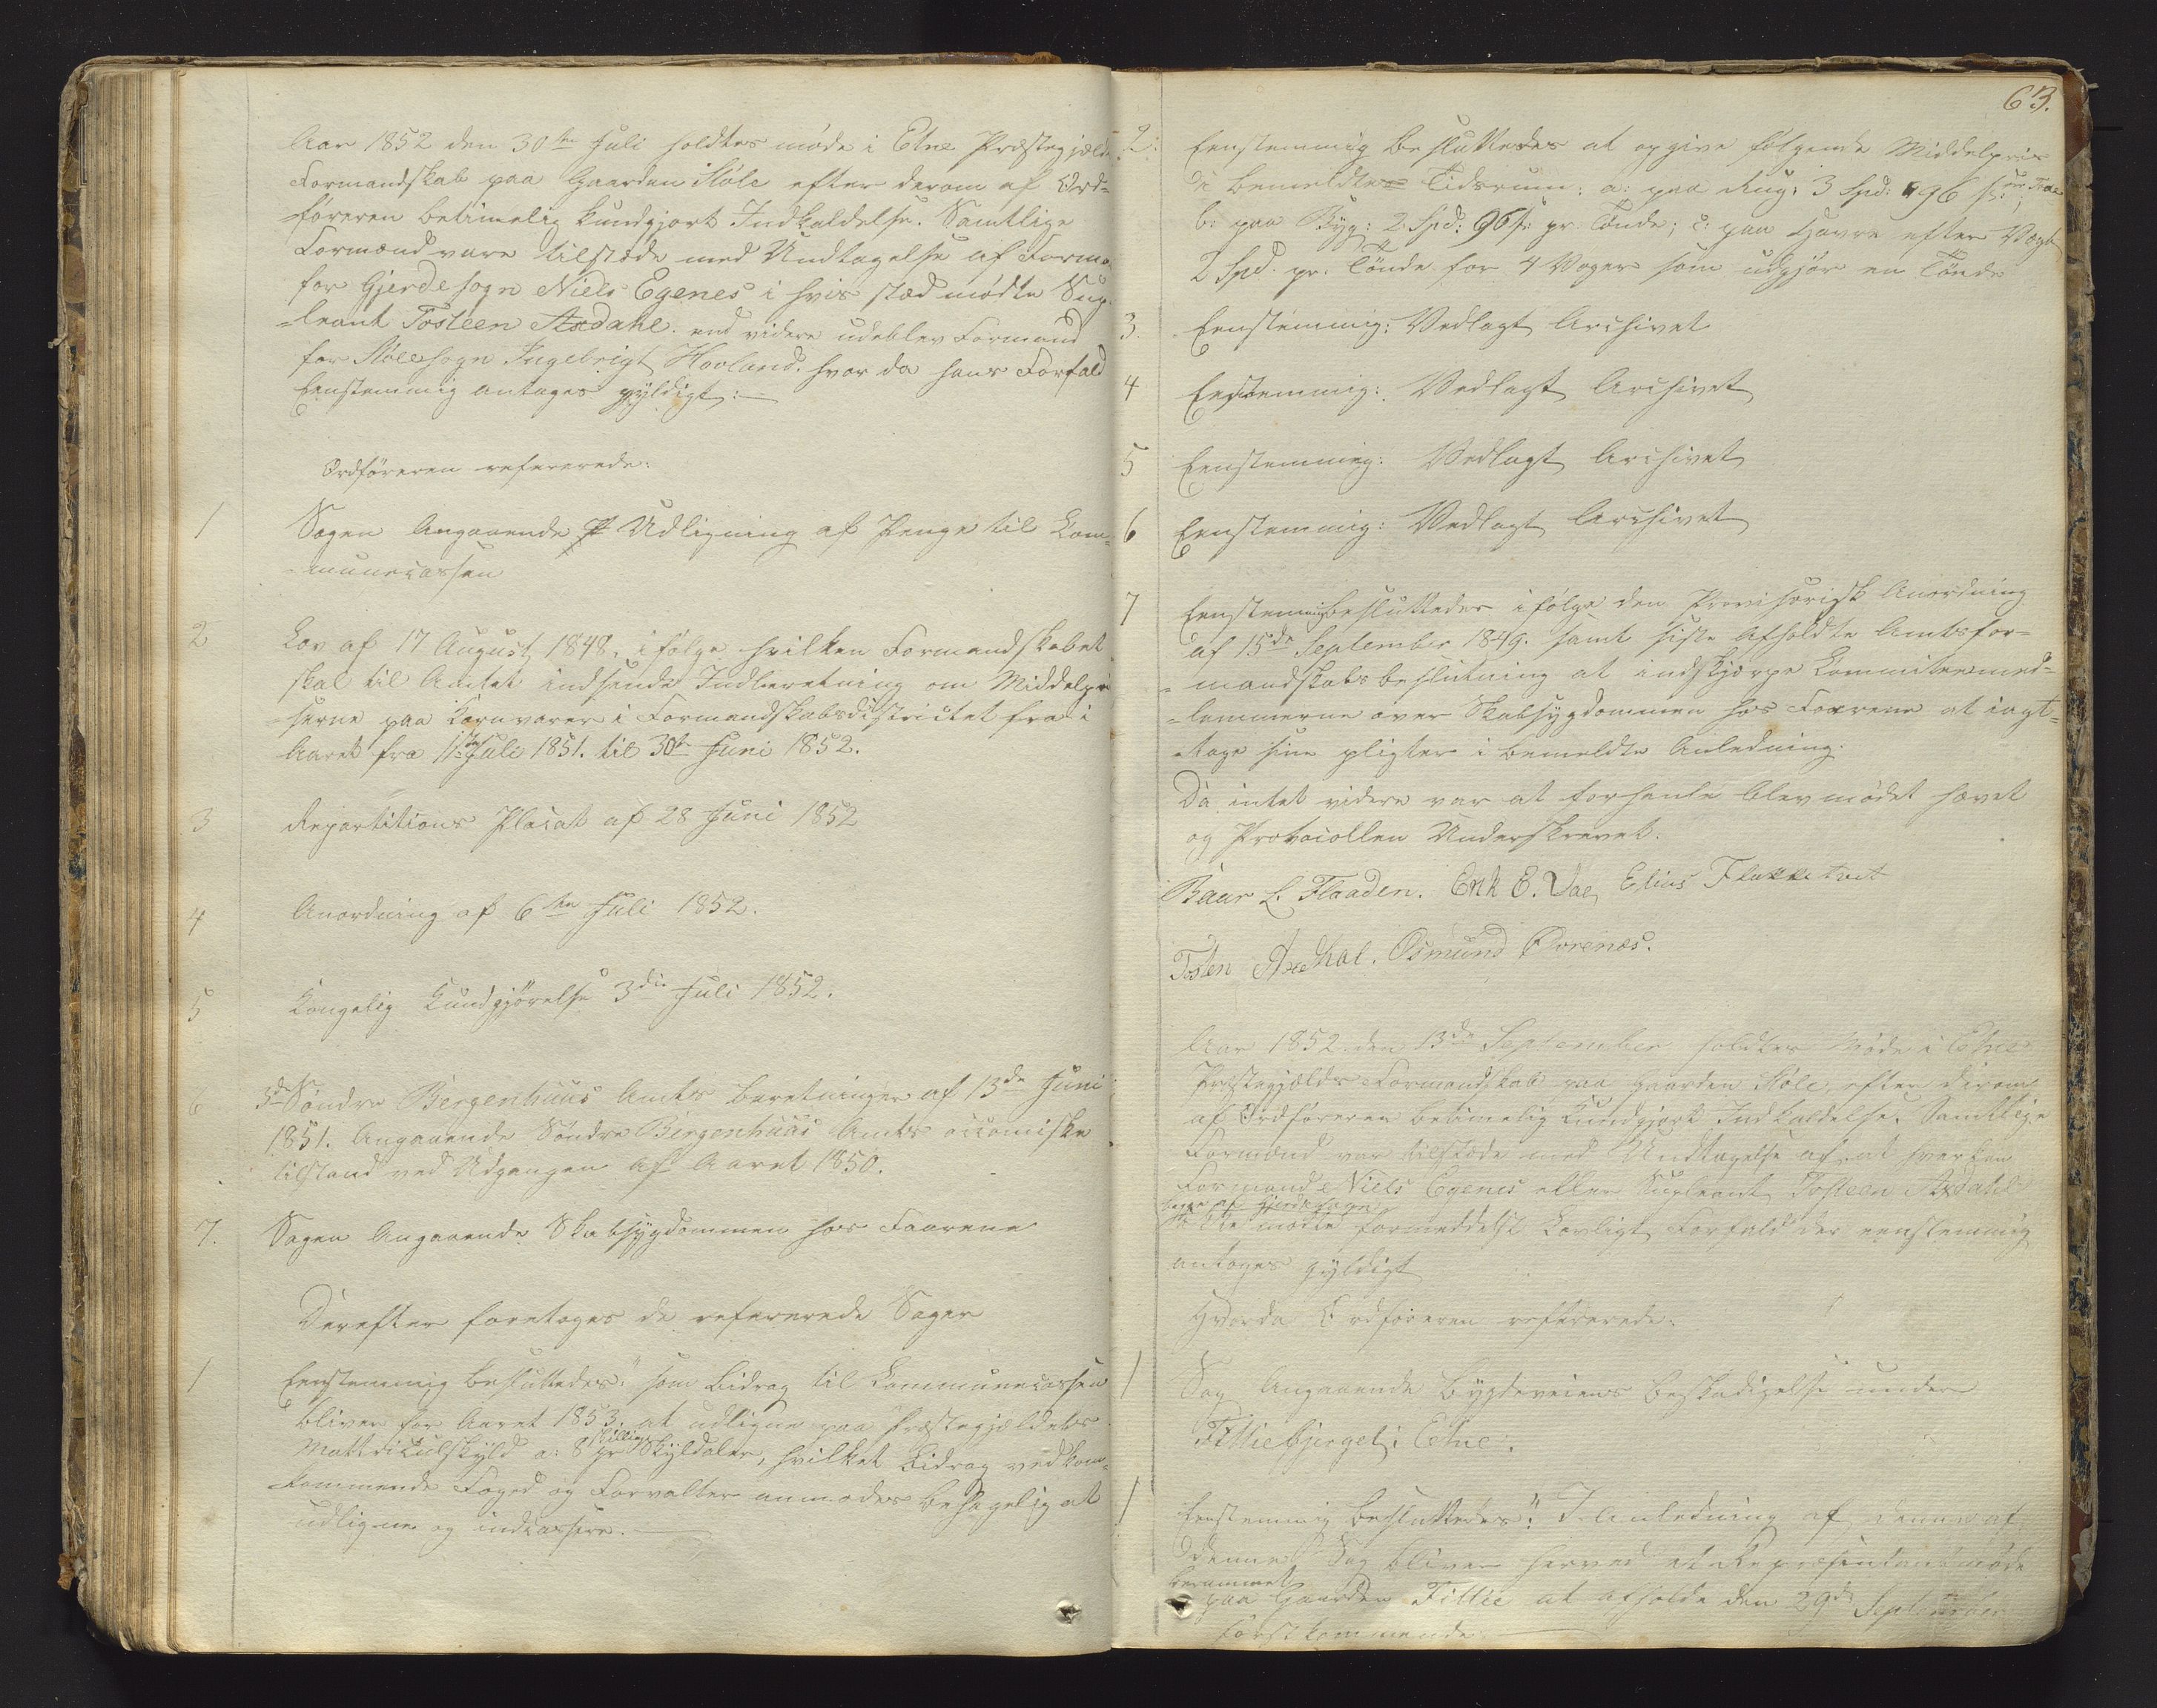 Aar 1852 den 30te Juli holdtes møde i Etne Præstegjælds
Formandskab paa Gaarden Støle efter derom af Ord-
føreren betimelig kundgjort Indkaldelse. Samtlige
Formænd vare tilstæde med Undtagelse af Form.
for Gjerde sogn Niels Egenes i hvis stæd mødte Sup-
-leant Tosteen Axdahl. end videre udeblev Formand
for Støle sogn Ingebrigt Hovland. hvor da hans Forfald
Eenstemmig antages gyldigt:—
Ordføreren refererede:
1 Sagen Angaaende Udligning af Penge til Com-
-munecassen
2 Lov af 17 August 1848. ifølge hvilken Formandskabet
skal til Amtet indsende Indberetning om Middelpri
-serne paa Kornvarer i Formandskabsdistrictet fra i
Aaret fra 1ste Juli 1851. til 30te Juni 1852.
3 Repartitions Placat af 28 Juni 1852
4 Anordning af 6te Juli 1852.
5 Kongelig Kundgjørelse 3die Juli 1852.
6 3de Søndre Bergenhuus Amts beretninger af 13de Juni
1851. Angaaende Søndre Bergenhuus Amts occomiske
tilstand ved Udgangen af Aaret 1850.
7. Sagen Angaaende Skabsygdommen hos Faarene
Derefter foretoges de refererede Sager
1 Eenstemmig besluttedes: "som bidrag til Communecassen
bliver for Aaret 1853. at udligne paa Præstegjeldets
Mattriculskyld a: 8 skilling pr Skyldaler, hvilket bidrag vedkom-
-kommende Foged og Forvalter anmodes behagelig at
udligne og indcassere.—
63.
2: Eenstemmig besluttedes at opgive følgende Middelpris
i bemeldte Tidsrum: a: paa Rug: 3 Spd: 96 s: pr Tønde;
b: paa Byg: 2 Spd: 96 s: pr. Tønde; c: paa Havre efter Vægt
2 Spd. pr. Tønde for 4 Voger som udgjør en Tønde
3. Eenstemmig: Vedlagt Archivet
4 Eenstemmig: Vedlagt Archivet
5 Eenstemmig: Vedlagt Archivet
6 Eenstemmig: Vedlagt Archivet
7 Eenstemmig besluttedes ifølge den Provisorisk Anordning
af 15de September 1849. samt siste Afholdte Amtsfor-
-mandskabs beslutning at indskjærpe Commiteemed-
-lemmerne over Skabsygdommen hos Faarene at iagt-
-tage sine pligter i bemeldte Anledning.
Da intet videre var at forhanle blev mødet hævet
og Protocollen Underskrevet.
Baar L. Flaaden. Erik E. Vae Elias Flakketvet
Tosten Axdhal. Osmund Øvrenæs.
Aar 1852. den 13de September holdtes Møde i Etne
Præstegjælds Formandskab paa gaarden Støle, efter derom
af Ordføreren betimelig kundgjort Indkaldelse. Samtlige
Formænd var tilstæde med Undtagelse af at hverken
Formand Niels Egenes eller Supleant Tosteen Axdahl
begge af Gjerde sogn
ikke mødte formeddelst Lovligt Forfald der eenstemmig
antages gyldigt
Hvorda Ordføreren refererede:
1 Sag Angaaende bygdeveiens beskadigelse under
Fittiebjerget i Etne.
1 Eenstemmig besluttedes: "I Anledning af denne af
denne Sag bliver herved et Repræsentantmøde
berammet
paa Gaarden Fittie at afholde den 29de September
førstkommende.—